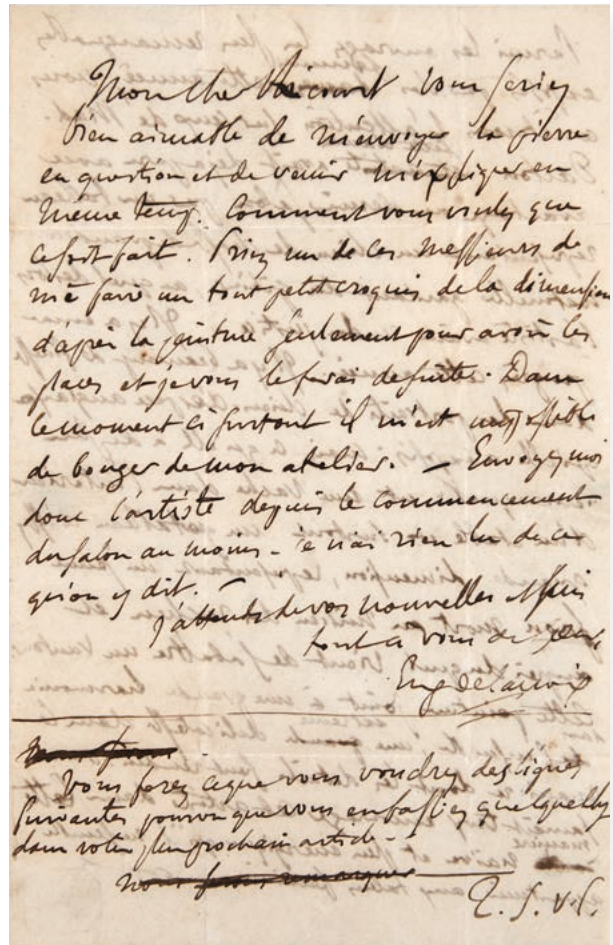 Mon cher Ricourt vous seriez
bien aimable de m'envoyer la pierre
en question et de venir m'expliquer en
meme temps. Comment vous voulez que
ce soit fait. Priez un de ces messieurs de
me faire un tout petit croquis de la dimension
d'après la peinture seulement pour avoir les
places et je vous le ferai de suite. Dans
le moment ci surtout il m'est impossible
de bouger de mon atelier. — Envoyez moi
donc l'artiste depuis le commencement
du salon au moins - je n'ai rien lu de ce
qu'on y dit. —
J'attends de vos nouvelles et suis
tout a vous de coeur
Eug delacroix
Vous ferez ce que vous voudrez des lignes
suivantes pourvu que vous en fassiez quelque
dans votre plus prochain article -
T. S. V. P.